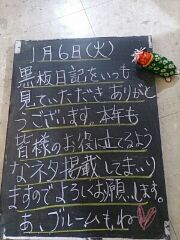 1月6日(火)
黒板日記をいつも
見ていただき ありがと
うございます。本年も
皆様のお役に立てるよう
なネタ掲載してまいり
ますのでよろしくお願いします。
あ、ブルームもね♡